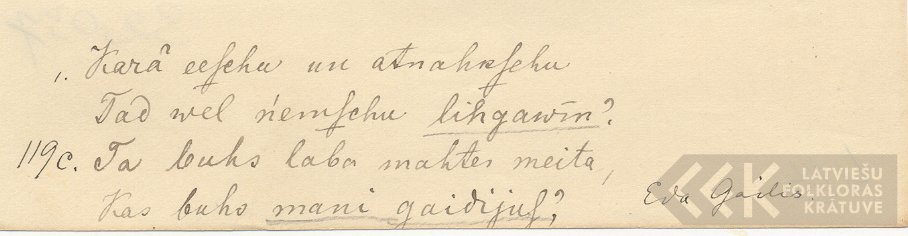 „ Karâ eeſchu un atnahkſchu
Tad wel ńemſchu lihgawin?
119c. Ta buhs laba mahtes meita,
Kas buhs mani gaidijuſ?
Eda Gailis
LATVIEŠU
FOLKLORAS
KRĀTUVE